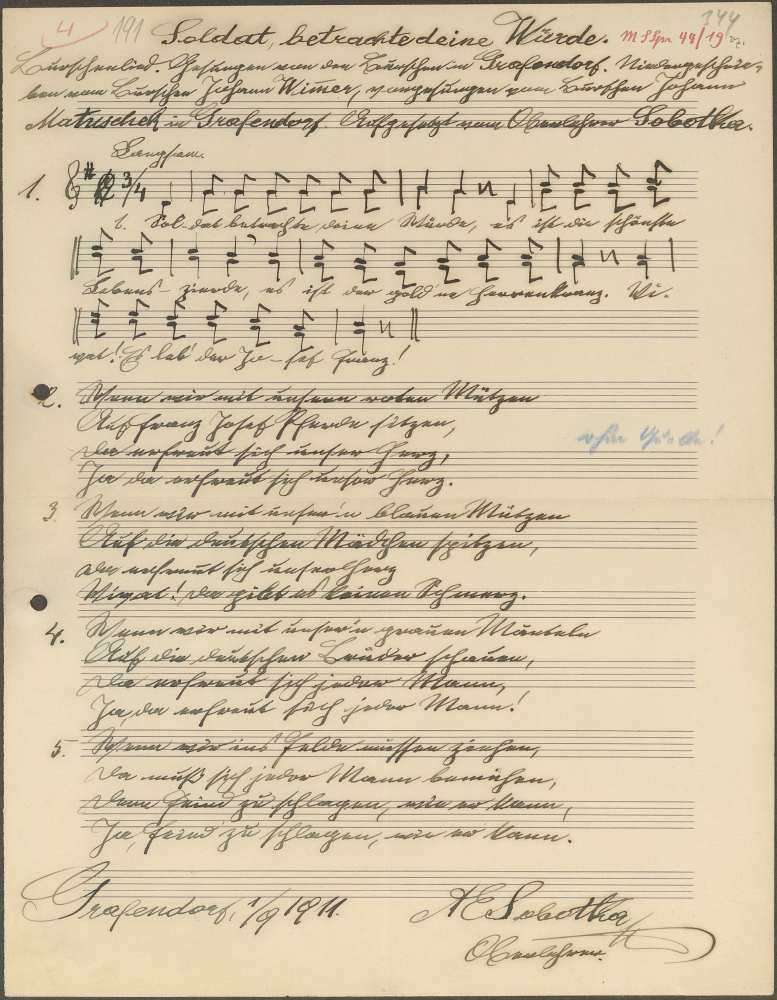 4 191 Soldat, betrachte deine Würde. 344
Burschenlied. Gesungen von den Burschen in Grafendorf. Niedergeschrie-
ben vom Burschen Johann Wimmer, vorgesungen vom Burschen Johann
Matuschek in Grafendorf. Aufgesetzt vom Oberlehrer Sobotka.
Langsam.
1. 3/4
1. Sol-dat betrachte deine Würde, es ist die schönste
Lebens-zierde, es ist der gold'ne Herrenkranz. Vi-
vat! Es leb' der Jo-sef Franz!
2. Wenn wir mit unsern roten Mützen
Auf Franz Josef Pferde sitzen,
Da erfreut sich unser Herz,
Ja da erfreut sich unser Herz.
3. Wenn wir mit unser'n blauen Mützen
Auf die deutschen Mädchen spitzen,
Da erfreut sich unser Herz
Vivat! Da gibt es keinen Schmerz.
4. Wenn wir mit unser'n grauen Mänteln
Auf die deutschen Brüder schauen,
Da erfreut sich jeder Mann,
Ja, da erfreut sich jeder Mann!
5. Wenn wir ins Felde müssen ziehen,
Da muß sich jeder Mann bemühen,
Denn Feind zu schlagen, wie er kann,
Ja, Feind zu schlagen, wie er kann.
Grafendorf, 1/9 1911. AE Sobotka
Oberlehrer.